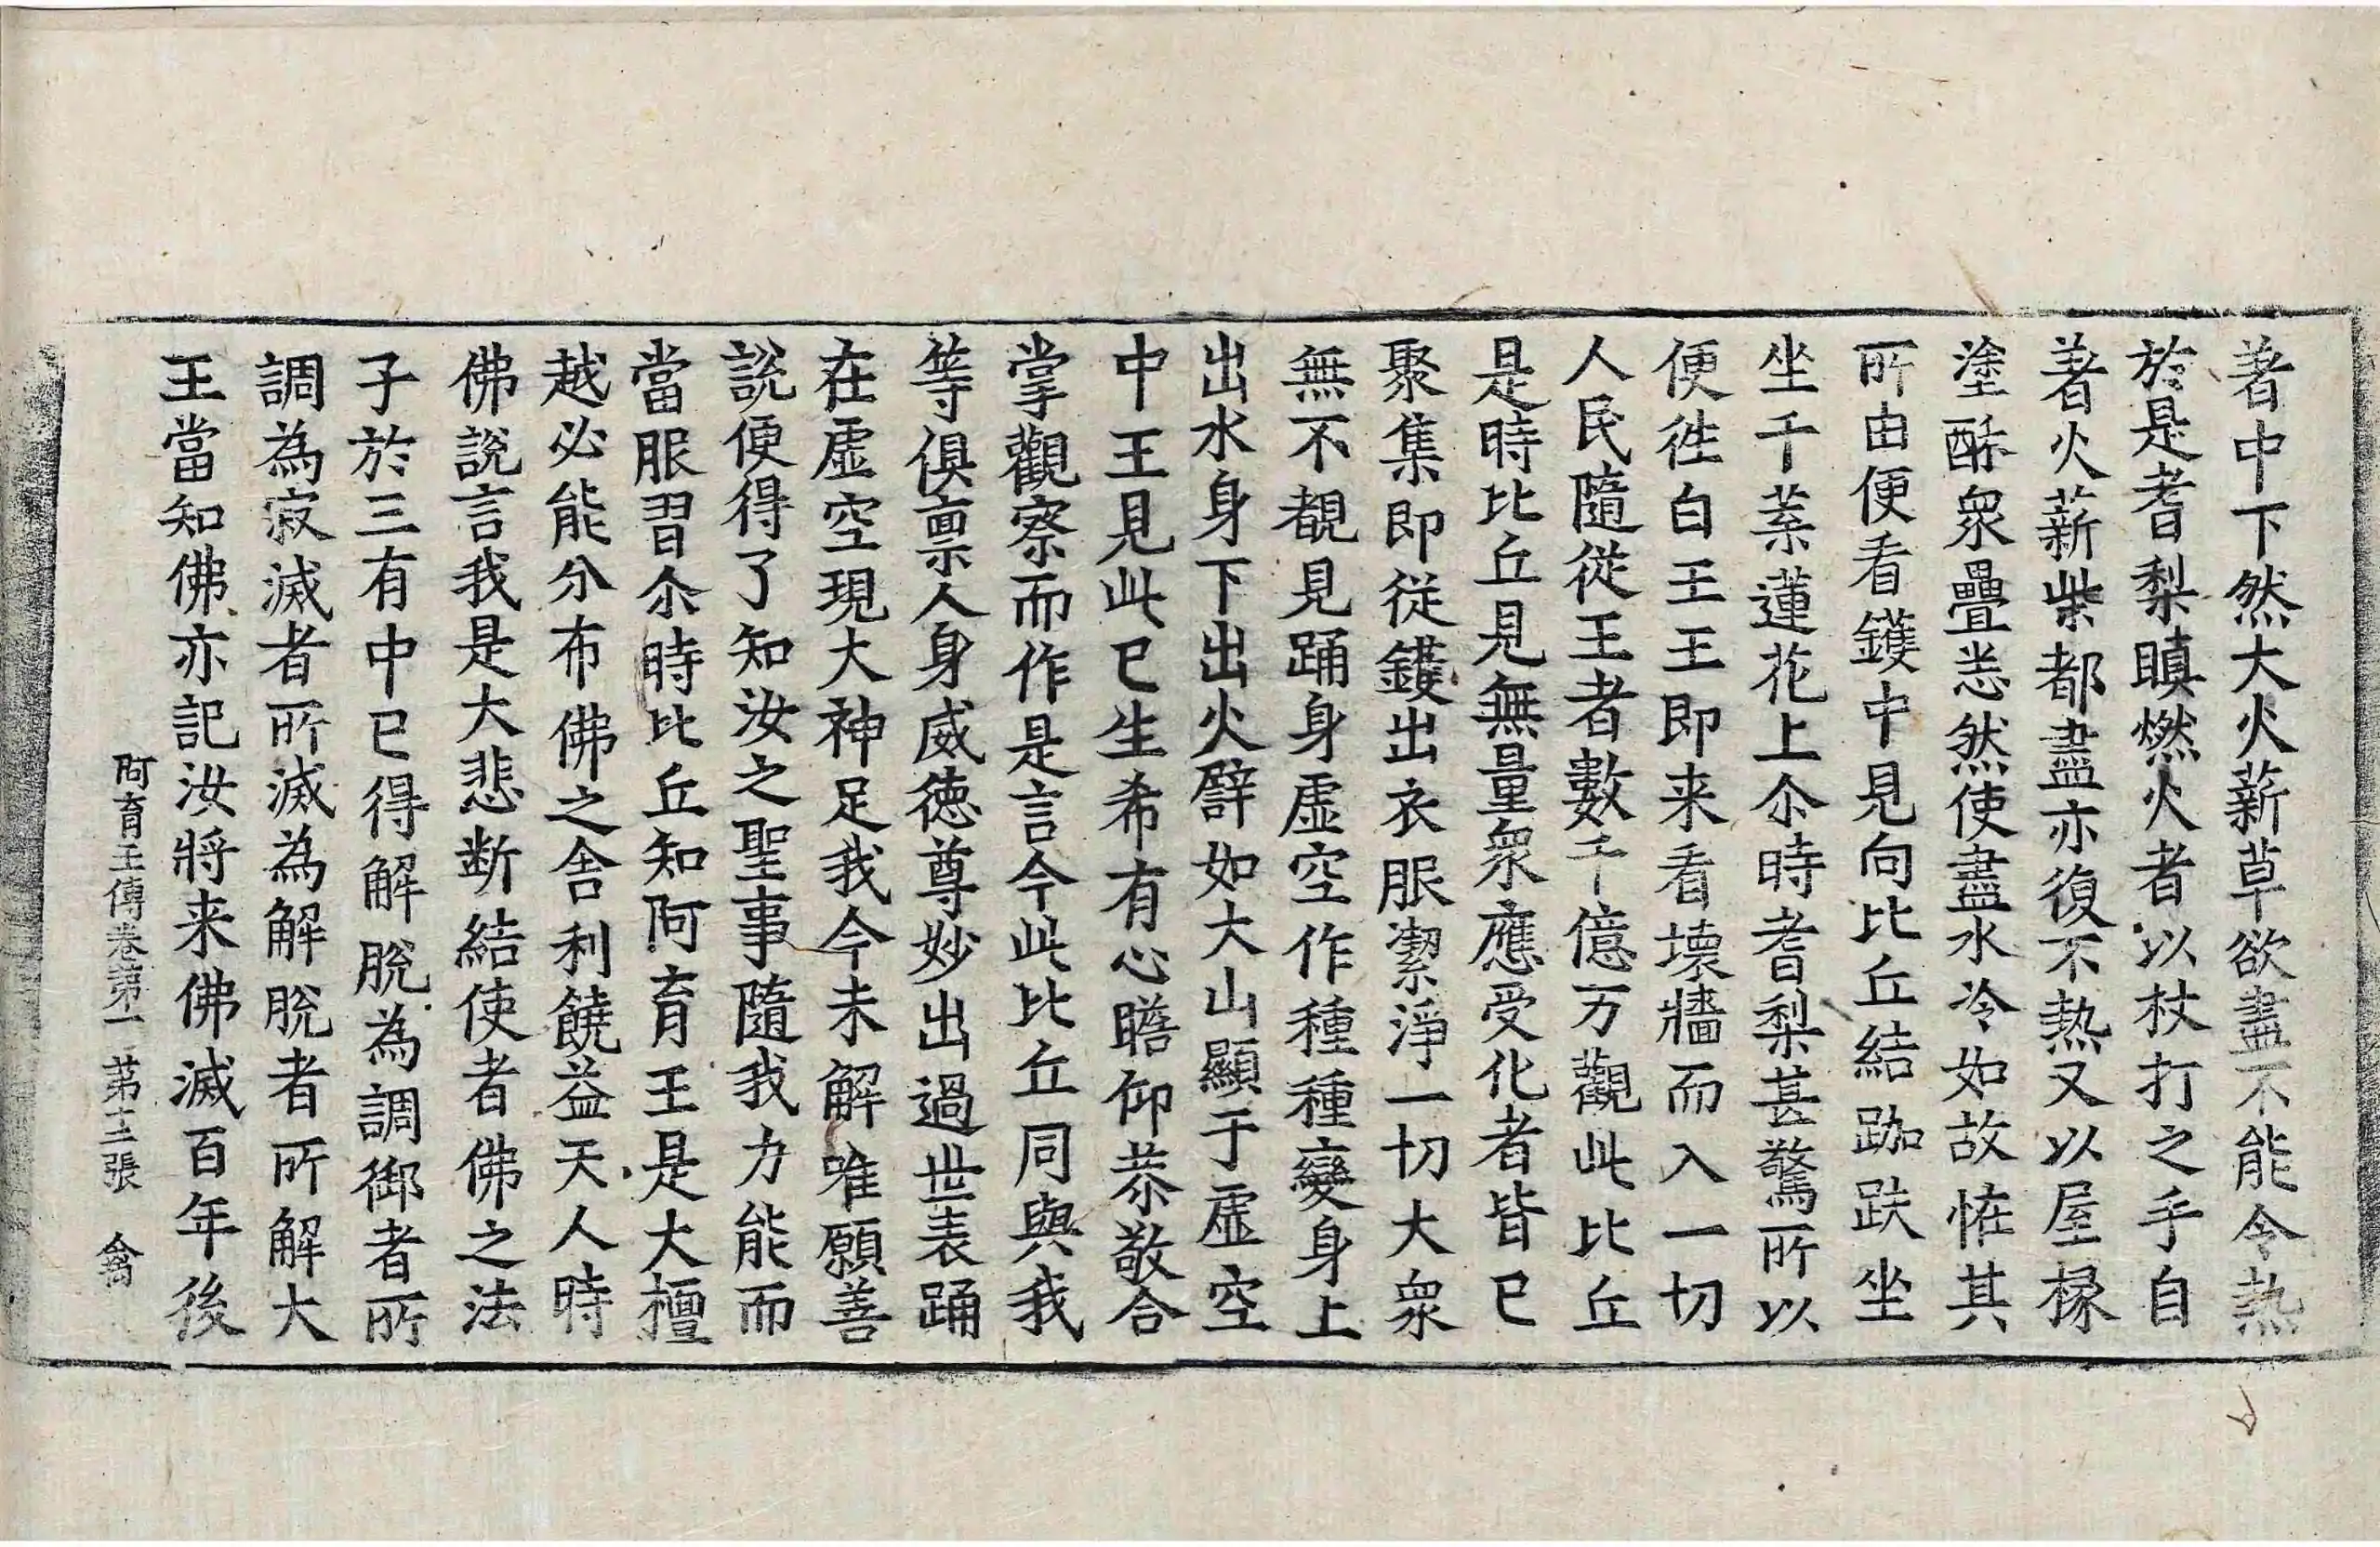 著中下然大火薪草欲盡不能令熱
於是耆梨瞋燃火者以杖打之手自
著火薪柴都盡亦復不熱又以屋椽
塗酥衆疊恙然使盡水冷如故恠其
所由便看鑊中見向比丘結跏趺坐
坐千葉蓮花上尒時耆梨甚驚所以
便徃白王王即来看壊牆而入一切
人民隨從王者數千億万觀此比丘
是時比丘見無量衆應受化者皆已
聚集即從鑊出衣服潔淨一切大衆
無不覩見踊身虛空作種種變身上
出水身下出火譬如大山顯于虛空
中王見此已生希有心瞻仰恭敬合
掌觀察而作是言今此比丘同與我
等俱禀人身威德尊妙出過世表踊
在虛空現大神足我今未解唯願善
說便得了知汝之聖事隨我力能而
當服習尒時比丘知阿育王是大檀
越必能分布佛之舎利饒益天人時
佛說言我是大悲断結使者佛之法
子於三有中已得解脫為調御者所
調為寂滅者所滅為解脫者所解大
王當知佛亦記汝將来佛滅百年後
阿育王傳卷第一 苐十二張 禽